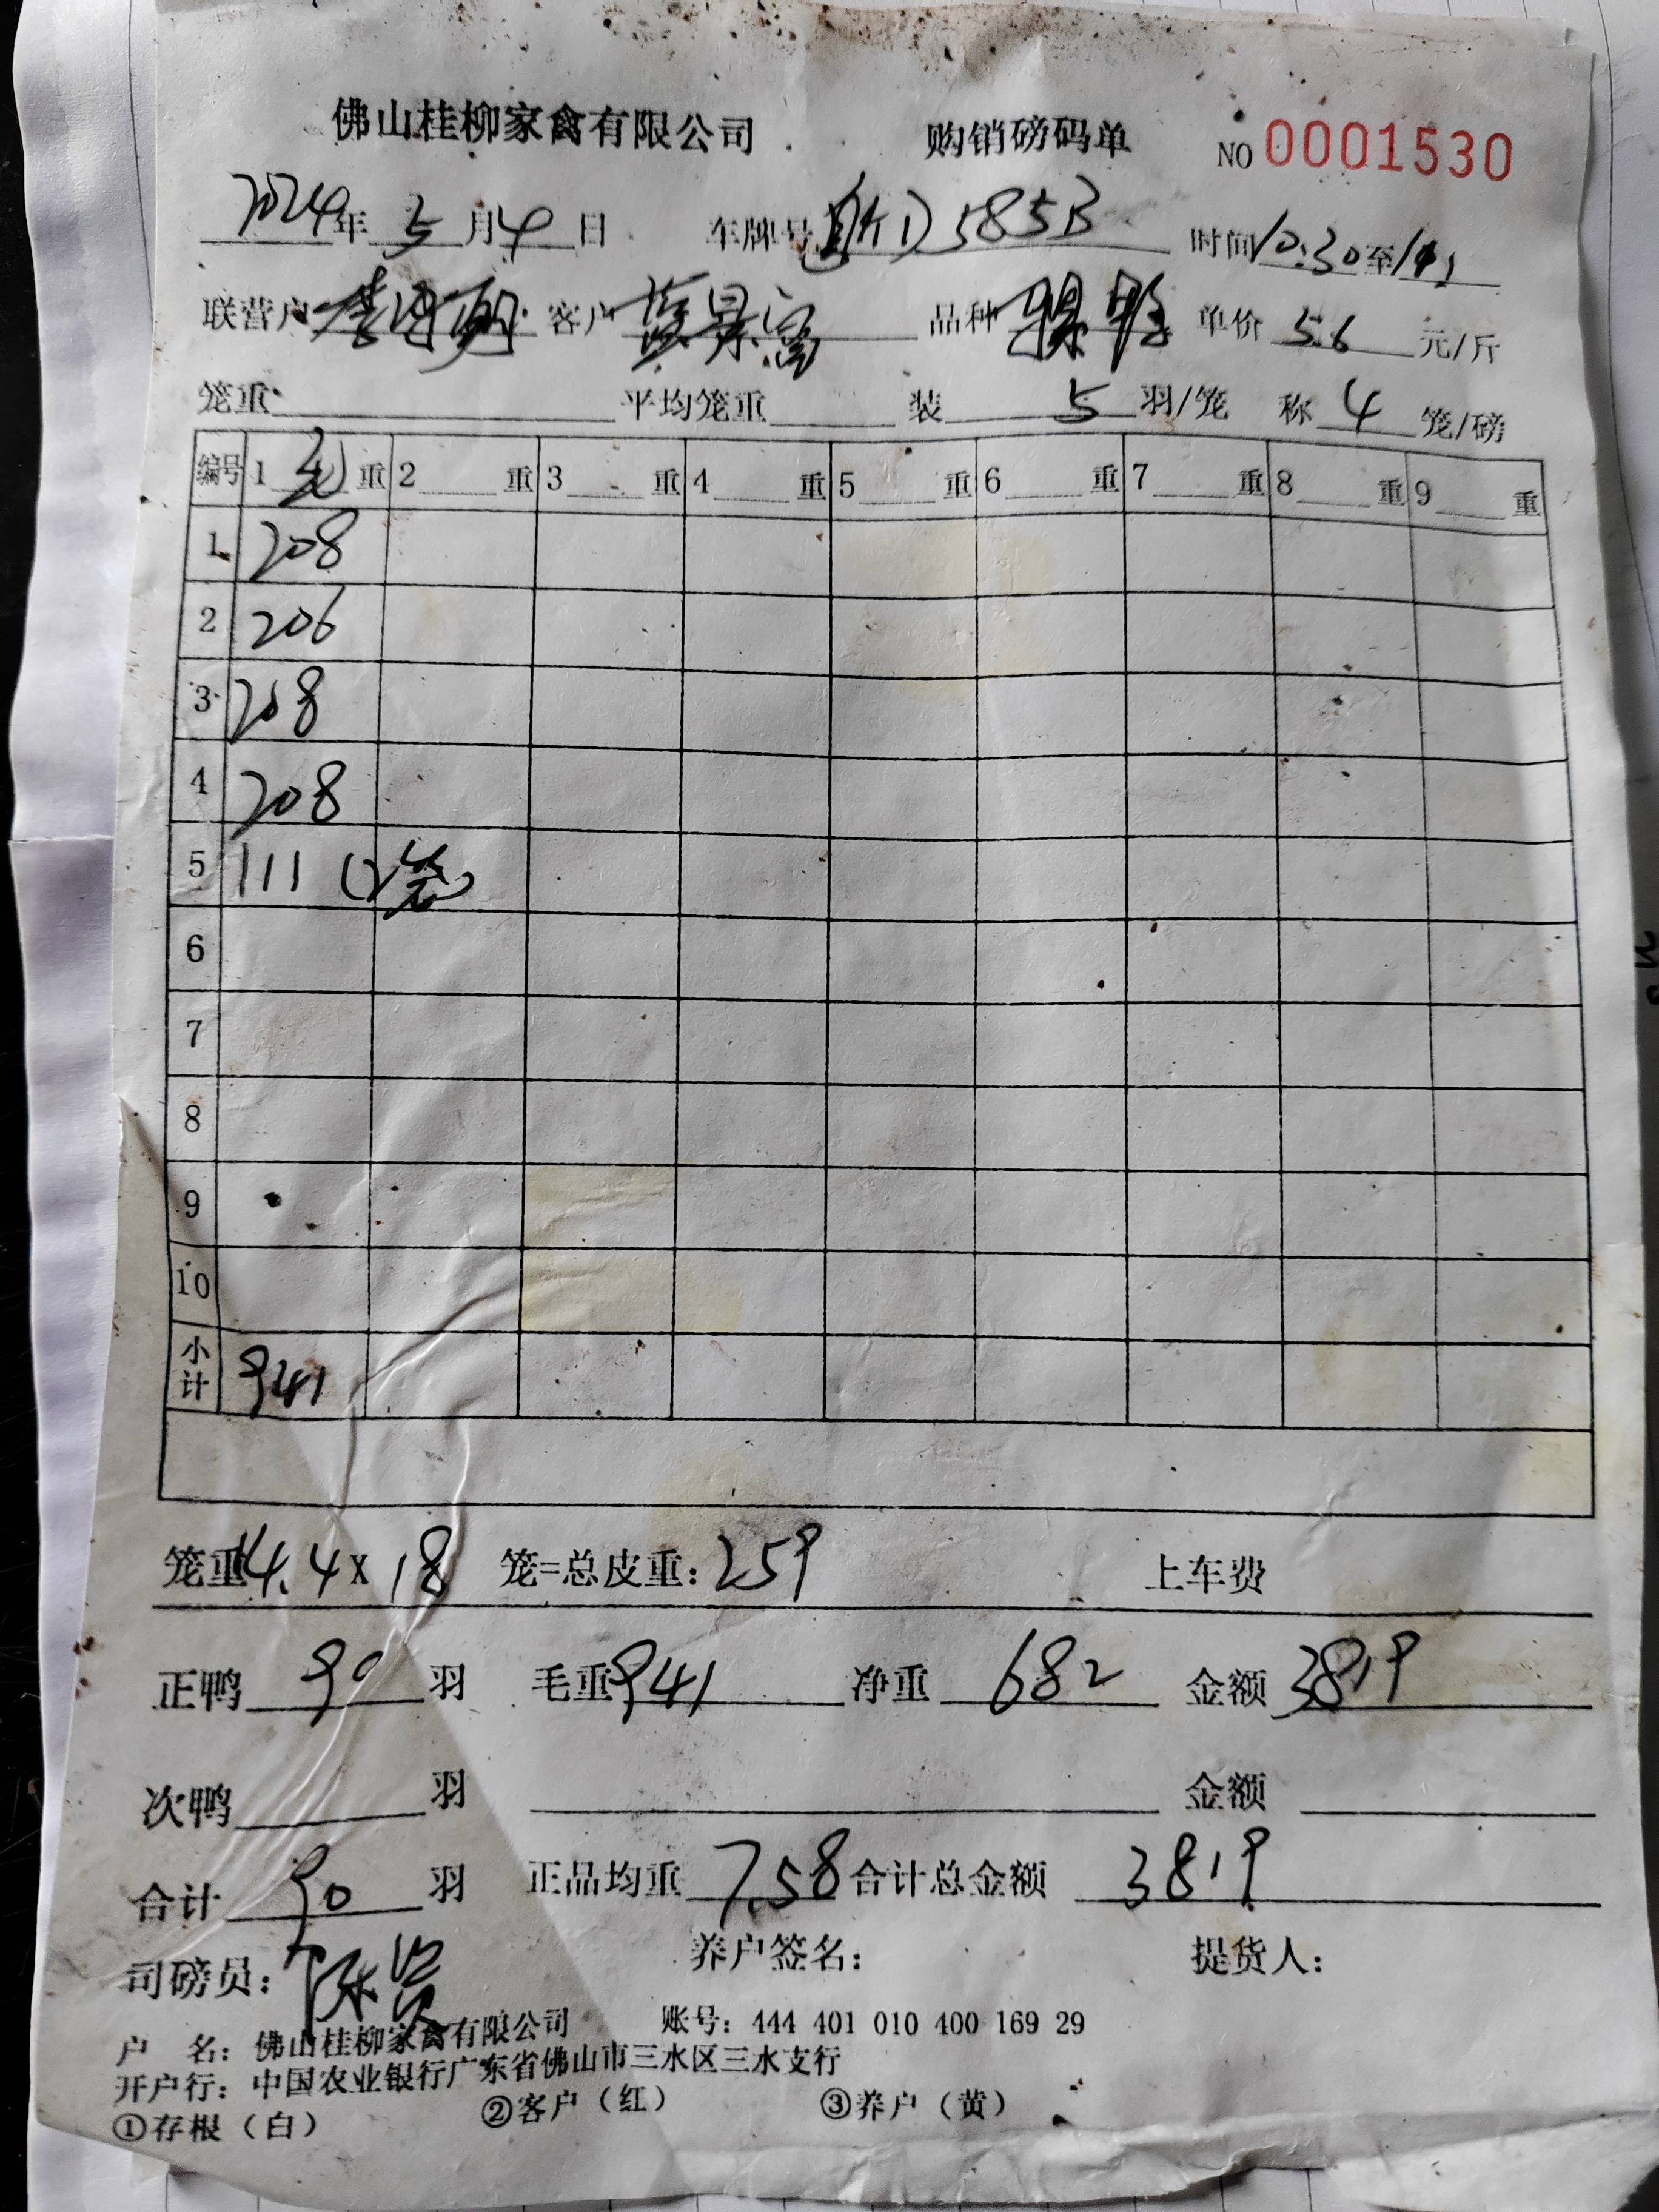 佛山桂柳家禽有限公司 购销磅码单 NO 0001530
2024年 5 月 4 日 车牌号 D585B 时间 10:30 至
联营户 客户 蓝景富 品种 单价 5.6 元/斤
笼重 平均笼重 装 5 羽/笼 称 4 笼/磅
编号 1 毛 重 2 重 3 重 4 重 5 重 6 重 7 重 8 重 9 重
1 208
2 206
3 208
4 208
5 111 (2笼)
6
7
8
9
10
小计 941
笼重 14.4 x 18 笼=总皮重: 259 上车费
正鸭 90 羽 毛重 941 净重 682 金额 3819
次鸭 羽 金额
合计 90 羽 正品均重 7.58 合计总金额 3819
司磅员: 养户签名: 提货人:
户 名: 佛山桂柳家禽有限公司 账号: 444 401 010 400 169 29
开户行: 中国农业银行广东省佛山市三水区三水支行
①存根(白) ②客户(红) ③养户(黄)